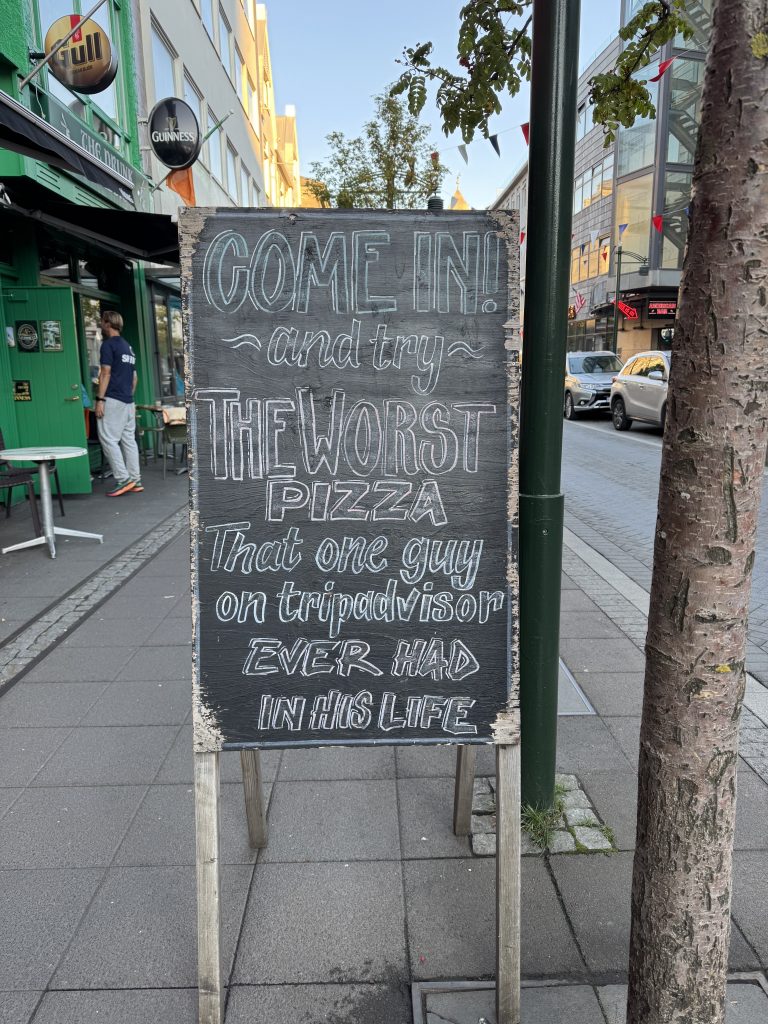 Gull
GUINNESS
COME IN!
~and try~
THE WORST
PIZZA
That one guy
on tripadvisor
EVER HAD
IN HIS LIFE